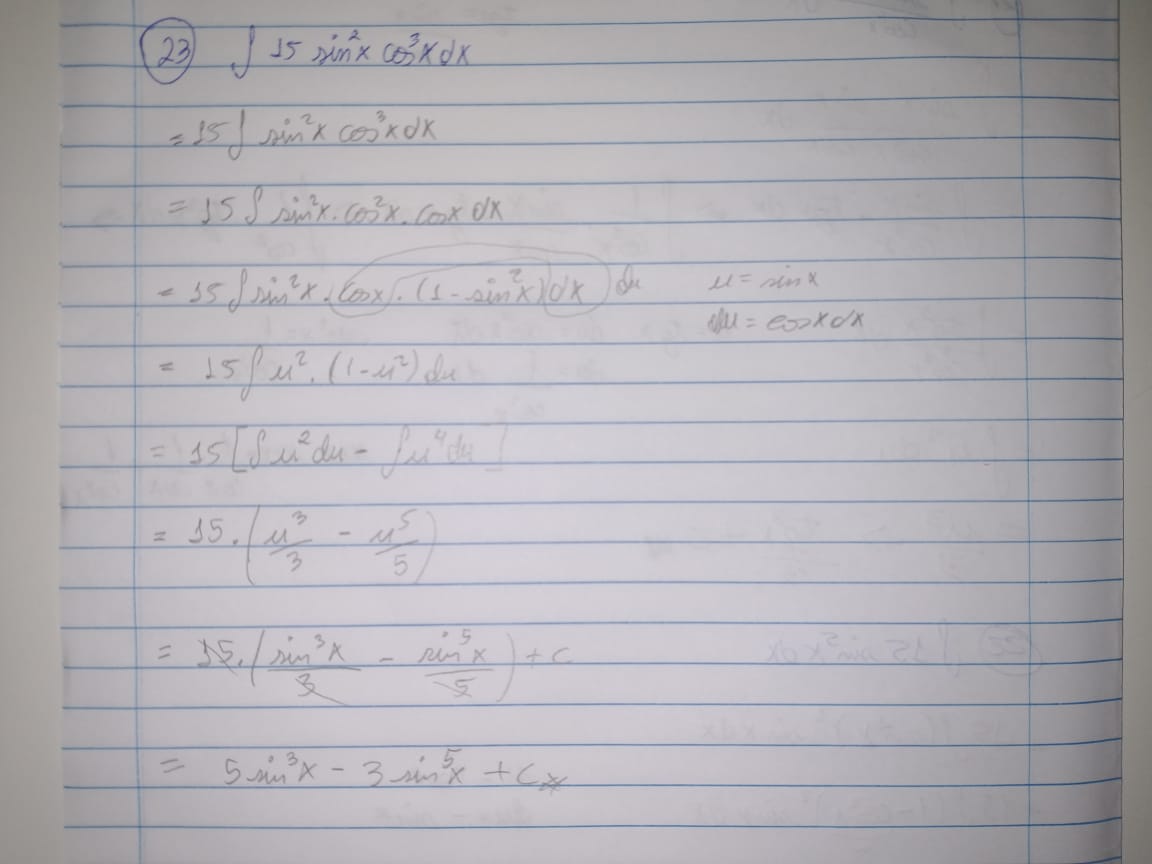 23 ∫ 15 sin²x cos³x dx
= 15 ∫ sin²x cos³x dx
= 15 ∫ sin²x . cos²x . cosx dx
= 15 ∫ sin²x . cosx . (1 - sin²x) dx du u = sinx
du = cosx dx
= 15 ∫ u² . (1 - u²) du
= 15 [∫ u² du - ∫ u⁴ du]
= 15 . (u³/3 - u⁵/5)
= 15 . (sin³x/3 - sin⁵x/5) + c
= 5 sin³x - 3 sin⁵x + c